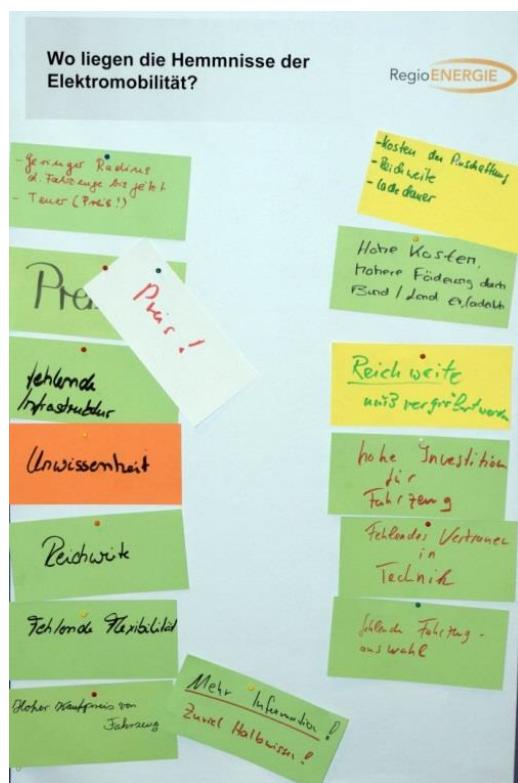 Wo liegen die Hemmnisse der
Elektromobilität?
RegioENERGIE
- Geringer Radius
d. Fahrzeuge bis jetzt
- Teuer (Preis!)
Preis!
fehlende
Infrastruktur
Unwissenheit
Reichweite
Fehlende Flexibilität
Hoher Kaufpreis von
Fahrzeug
Mehr Information!
Zuviel Halbwissen!
- Kosten der Anschaffung
- Reichweite
- Ladedauer
Hohe Kosten,
Höhere Föderung durch
Bund / Land erforderlich
Reichweite
muß vergrößert werden
hohe Investition
für
Fahrzeug
Fehlendes Vertrauen
in
Technik
fehlende Fahrzeug-
auswahl